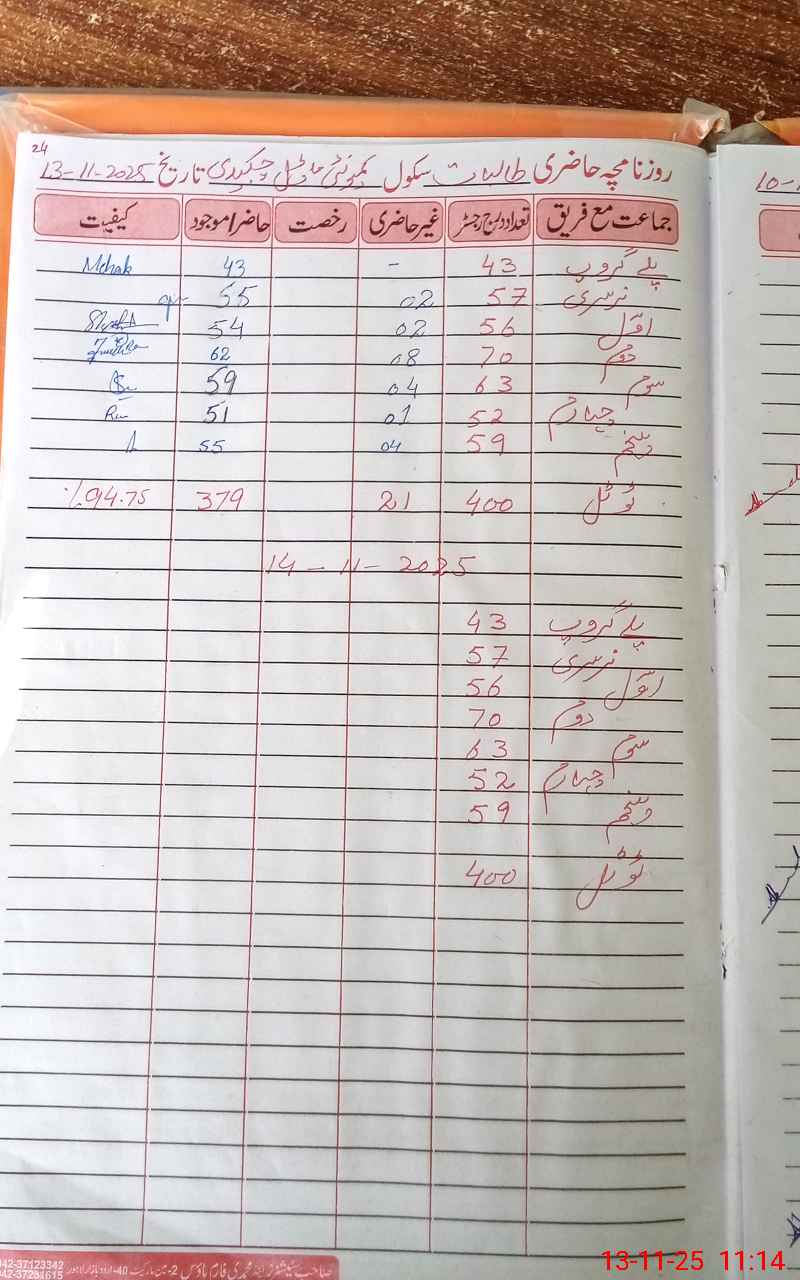 24
روزنامچہ حاضری طالبات سکول کمیونٹی ماڈل تاریخ 13-11-2025
جماعت مع فریق تعداد درج رجسٹر غیر حاضری رخصت حاضر/موجود کیفیت
پلے گروپ 43 - 43 Mehak
نرسری 57 02 55
اوّل 56 02 54
دوم 70 08 62
سوم 63 04 59
چہارم 52 01 51
پنجم 59 04 55
ٹوٹل 400 21 379 ٪94.75
14-11-2025
پلے گروپ 43
نرسری 57
اوّل 56
دوم 70
سوم 63
چہارم 52
پنجم 59
ٹوٹل 400
10-
042-37123342
13-11-25 11:14